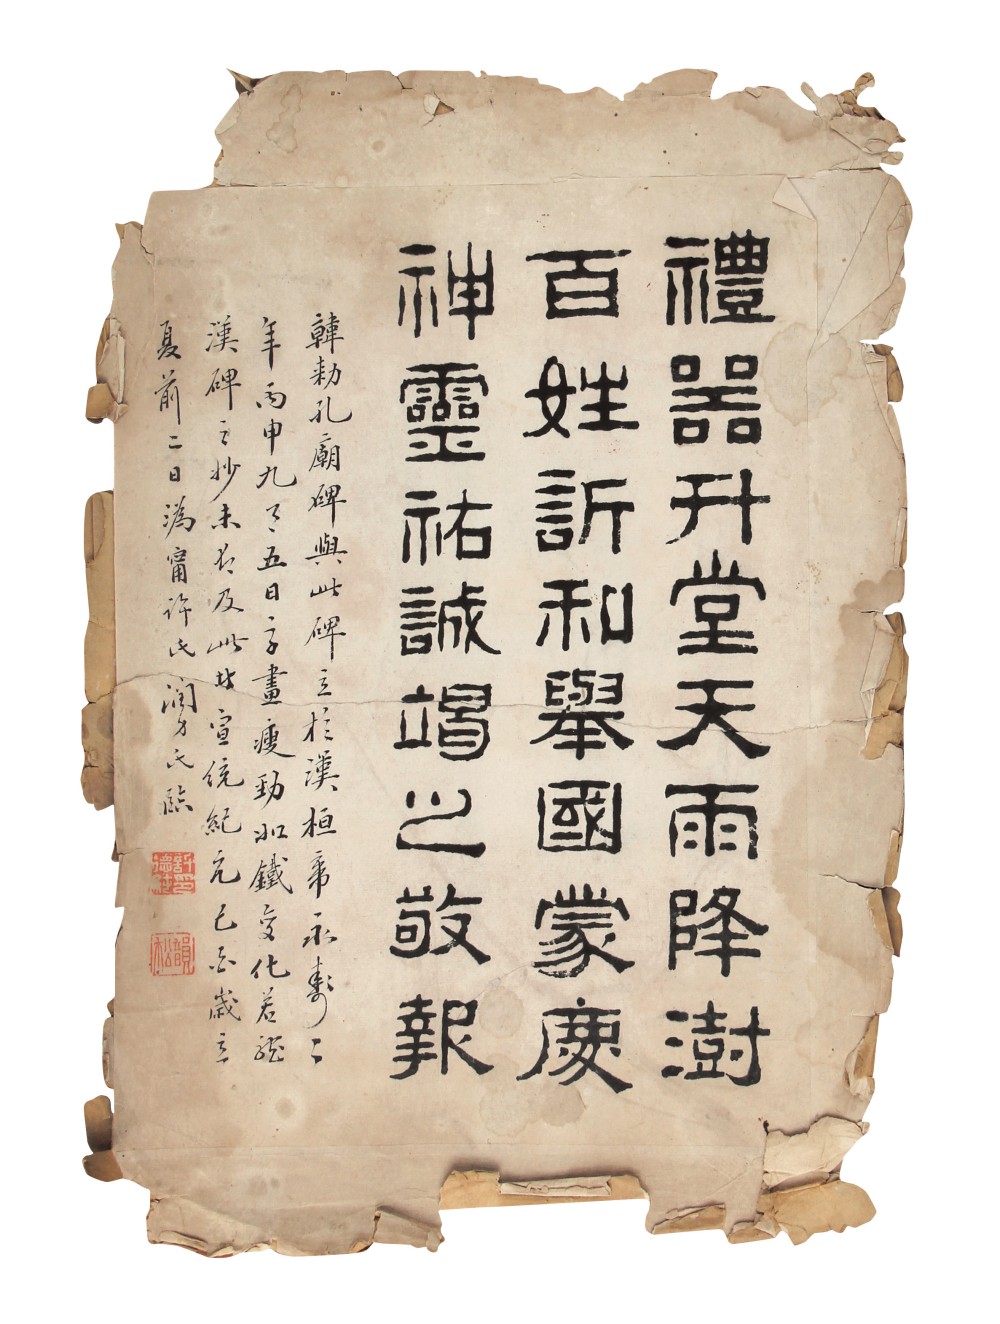 禮器升堂天雨降澍
百姓訢和舉國蒙慶
神靈祐誠竭之敬報
韓勑孔廟碑與此碑立於漢桓帝永壽二
年丙申九月五日字畫瘦勁如鐵變化若龍
漢碑之妙未有及此者宣統紀元己酉歲立
夏前二日溈甯許氏潤身氏臨
許印德坤
韻松